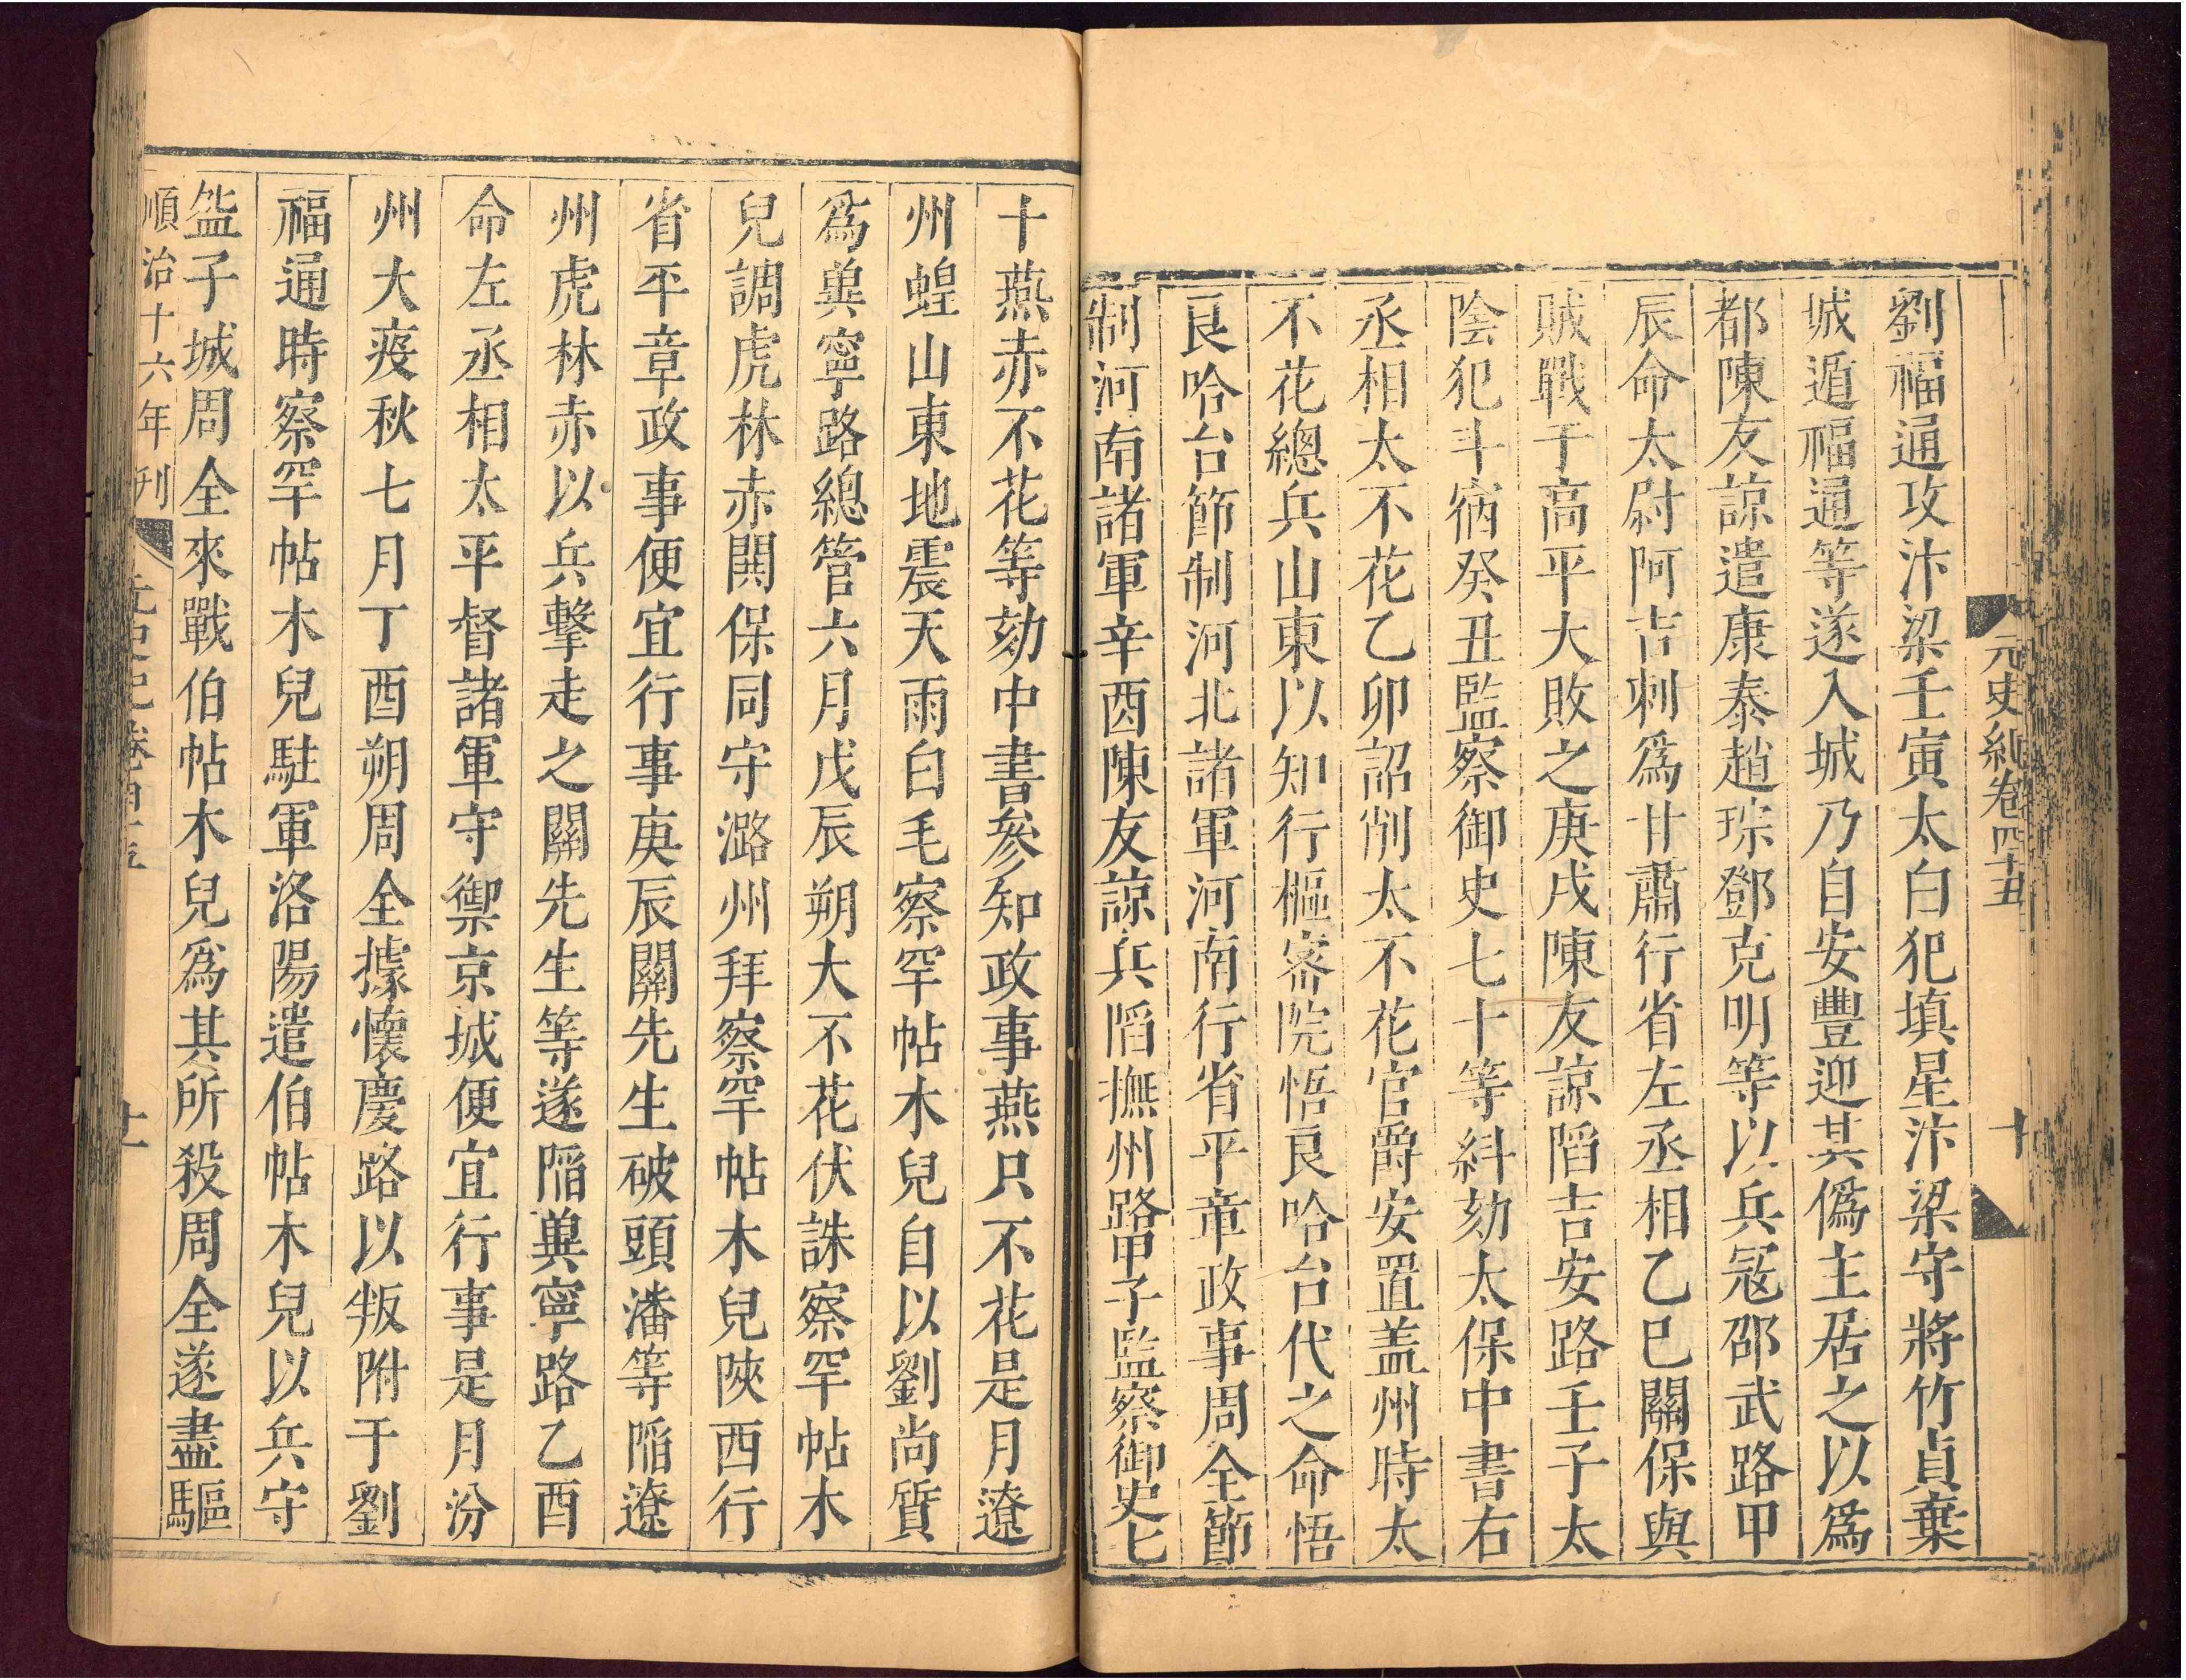 元史紀卷四十五 十
劉福通攻汴梁壬寅太白犯填星汴梁守將竹貞棄
城遁福通等遂入城乃自安豐迎其僞主居之以爲
都陳友諒遣康泰趙琮鄧克明等以兵寇邵武路甲
辰命太尉阿吉剌爲甘肅行省左丞相乙巳關保與
賊戰于高平大敗之庚戌陳友諒䧟吉安路壬子太
陰犯斗宿癸丑監察御史七十等糾劾太保中書右
丞相太不花乙卯詔削太不花官爵安置盖州時太
不花總兵山東以知行樞密院悟良哈台代之命悟
良哈台節制河北諸軍河南行省平章政事周全節
制河南諸軍辛酉陳友諒兵䧟撫州路甲子監察御史七
十燕赤不花等劾中書參知政事燕只不花是月遼
州蝗山東地震天雨白毛察罕帖木兒自以劉尚質
爲兾寧路總管六月戊辰朔大不花伏誅察罕帖木
兒調虎林赤関保同守潞州拜察罕帖木兒陝西行
省平章政事便宜行事庚辰關先生破頭潘等䧟遼
州虎林赤以兵擊走之關先生等遂䧟兾寧路乙酉
命左丞相太平督諸軍守禦京城便宜行事是月汾
州大疫秋七月丁酉朔周全據懷慶路以叛附于劉
福通時察罕帖木兒駐軍洛陽遣伯帖木兒以兵守
盌子城周全來戰伯帖木兒爲其所殺周全遂盡驅
順治十六年刊 元史紀卷四十五 十一